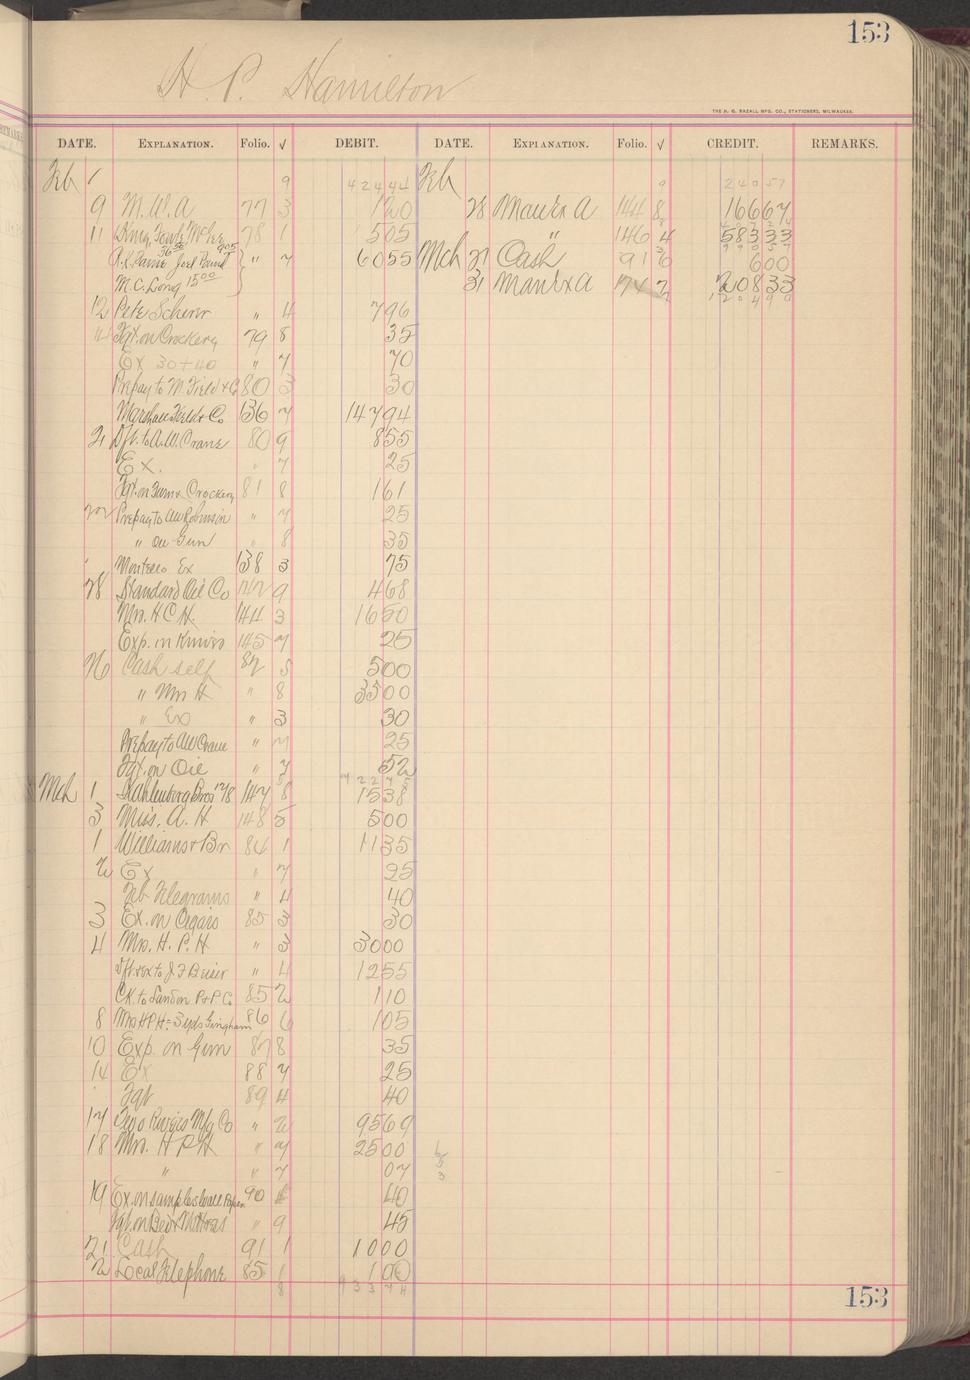 153
H. P. Hamilton
THE H. G. RAZALL MFG. CO., STATIONERS, MILWAUKEE.
DATE. EXPLANATION. Folio. √ DEBIT. DATE. EXPLANATION. Folio. √ CREDIT. REMARKS.
Feb 1 9 42444 Feb 9 24057
9 M. W. A 77 3 120 28 Manfr A 144 8 16667
11 King Fowle McGee 78 1 505 " 146 4 58333
R.K. Paine 36 50 Joel Pound 905 " 7 6055 Mch 21 Cash 91 6 600
M.C. Long 15 00 31 Manfr A 20833
12 Pete Scherer " 4 796 120490
14 Fgt. on Crockery 79 8 35
Ex 30 + 40 " 7 70
Prepay to M. Field & Co 80 3 30
Marshall Field & Co 136 7 14794
21 Dft. to A.W. Crane 80 9 855
Ex. " 7 25
Fgt. on Furn & Crockery 81 8 161
22 Prepay to AW Robinson " 7 25
" on Gun " 8 35
" Montello Ex 138 3 75
28 Standard Oil Co 142 9 468
Mrs. H C H. 144 3 1650
Exp. on Knives 145 7 25
26 Cash self 82 5 500
" Mrs H " 8 3500
" Ex " 3 30
Prepay to AW Crane " 7 25
Fgt. on Oil " 7 52
Mch 1 Kahlenberg Bros 147 8 1538
3 Miss. A. H 148 5 500
1 Williams + Br 84 1 1135
2 Ex " 7 25
Feb Telegrams " 4 40
3 Ex. on Cigars 85 3 30
4 Mrs. H. P. H " 3 3000
Dft. & ex to J. F. " 4 1255
CK. to Landon P. & P. Co 85 2 110
8 Mrs H P H = 3 yds Gingham 86 6 105
10 Exp. on Gun 87 8 35
14 Ex 88 7 25
" Fgt 89 4 40
17 Two Rivers Mfg Co " 2 9569
18 Mrs. H P H " 7 2500
" " 7 07
19 Ex. on samples Wall Paper 90 40
Fgt. on Bed & Mattress " 9 45
21 Cash 91 1 1000
2 Local Telephone 85 1 100
8 93374
153